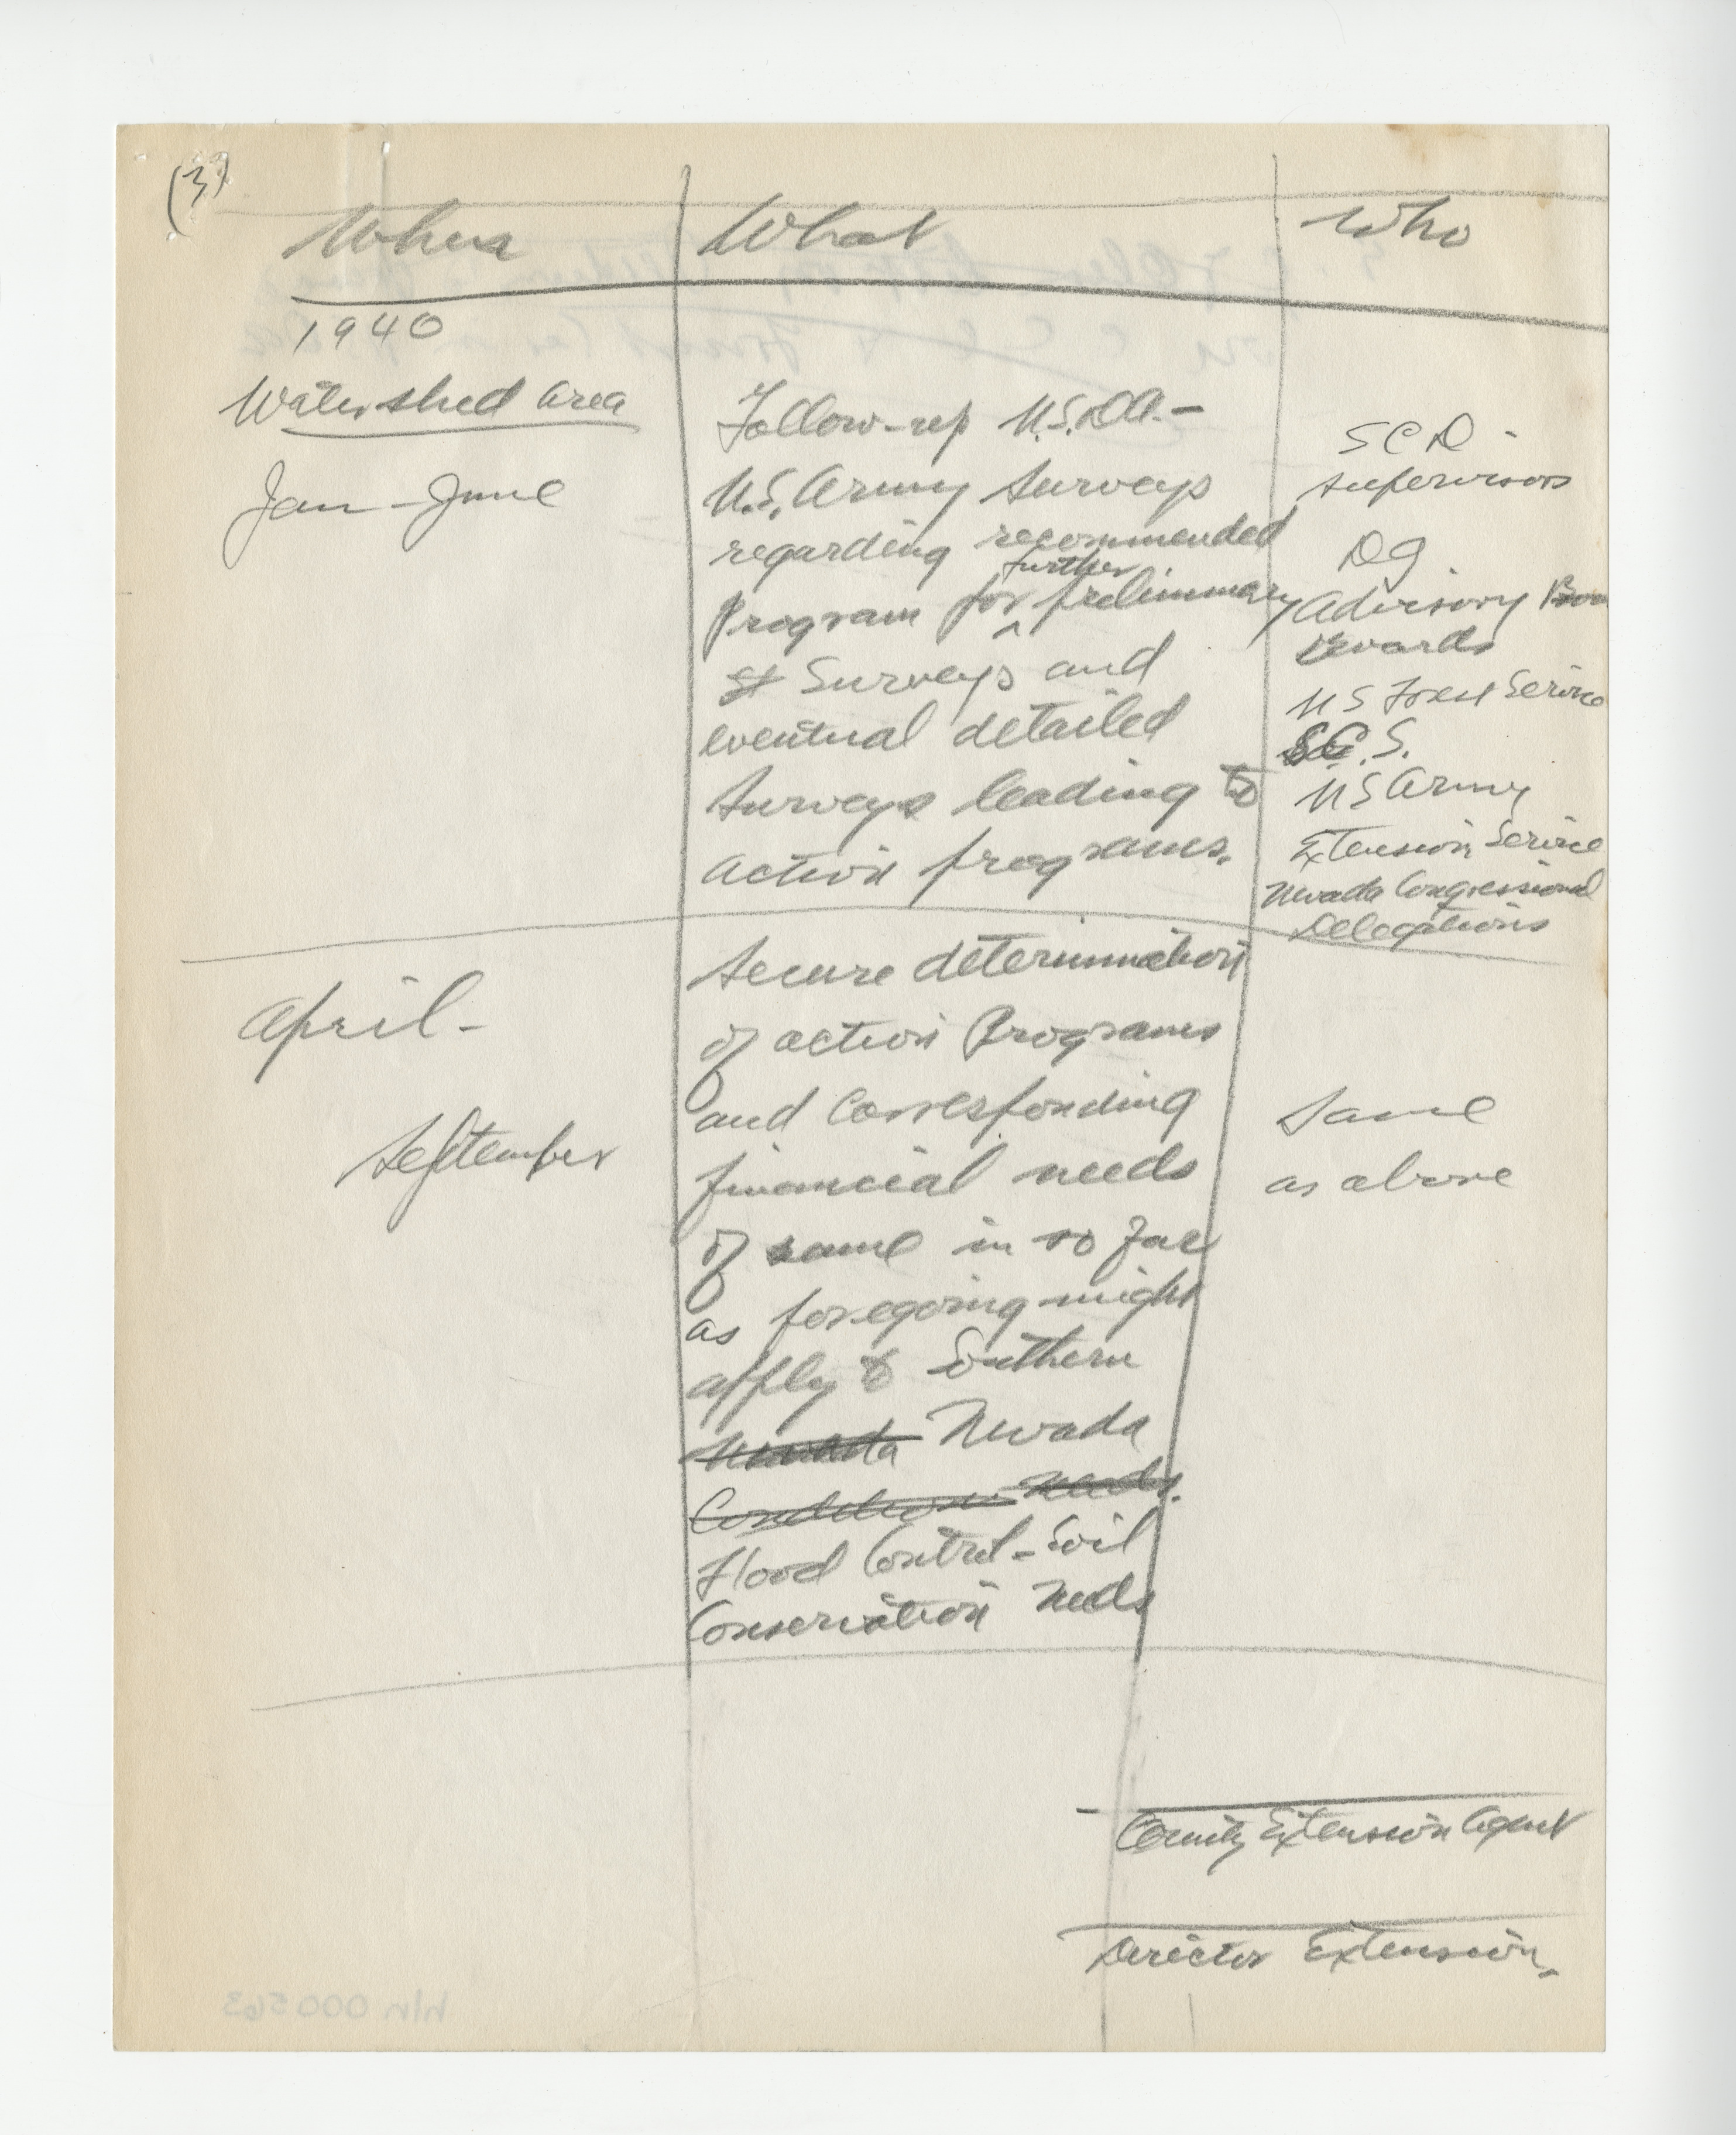 (3)
When What Who
1940
Watershed Area
Jan - June
Follow-up U.S.D.A. -
U.S. Army Surveys
regarding recommended
further
Program for preliminary
St Surveys and
eventual detailed
Surveys leading to
action programs.
SCD -
supervisors
DG
Advisory
Boards
US Forest Service
S.C.S.
US Army
Extension Service
Nevada Congressional
Delegations
April -
September
Secure determination
of action Programs
and Corresponding
financial needs
of same in so far
as foregoing might
apply to Southern
Nevada Nevada
Conditions needs.
Flood Control - Soil
Conservation Needs
Same
as above
County Extension Agent
Director Extension
hln 000563